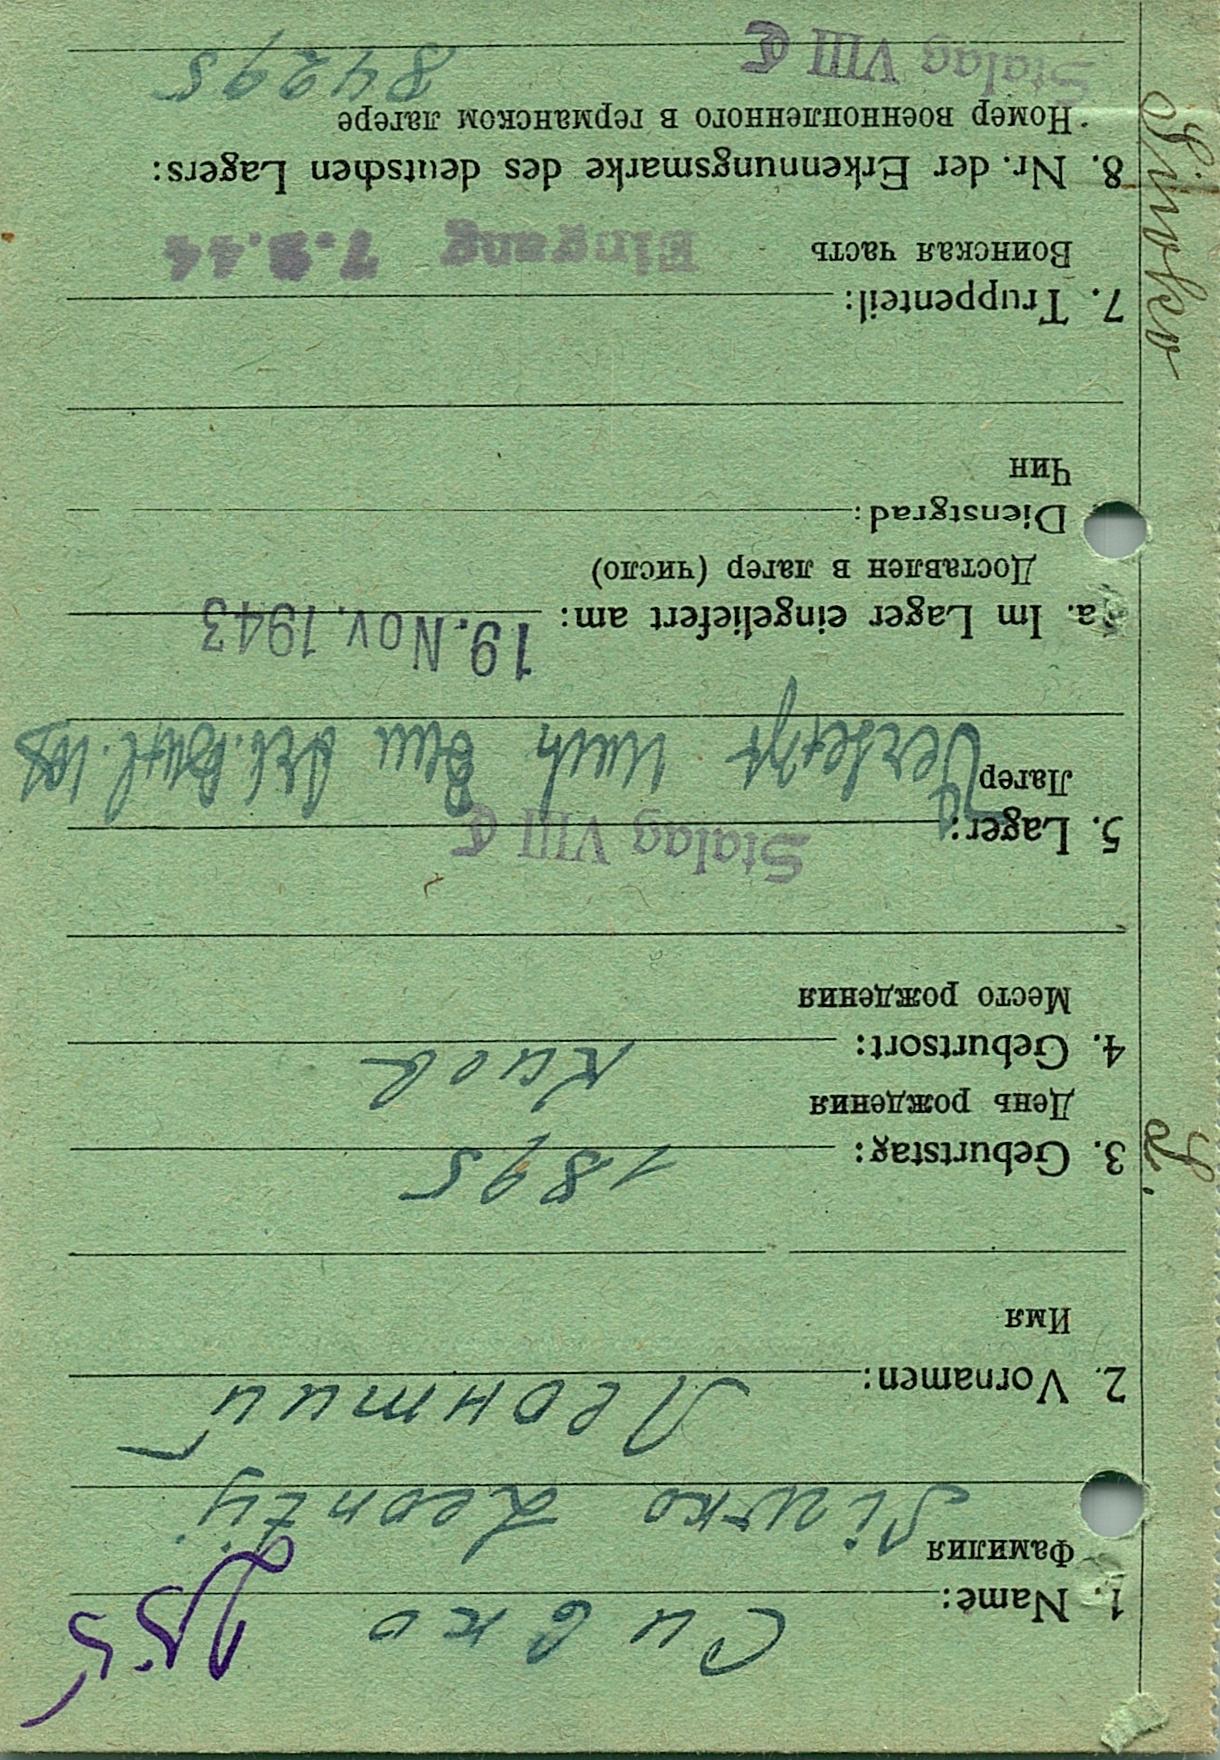 1. Name: Сивко
Фамилия
Siwko Leontij
2. Vornamen: Леонтий
Имя
3. Geburtstag: 1895
День рождения
4. Geburtsort: Киев
Место рождения
Stalag VIII C
5. Lager:
Лагер
Versetzt nach
a. Im Lager eingeliefert am: 19. Nov. 1943
Доставлен в лагер (число)
Dienstgrad:
Чин
7. Truppenteil:
Воинская часть Eingang 7.
8. Nr. der Erkennungsmarke des deutschen Lagers:
Номер военнопленного в германском лагере
Stalag VIII C 84295